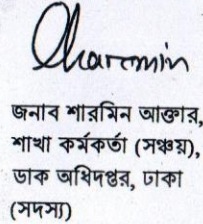 Sharmin
জনাব শারমিন আক্তার,
শাখা কর্মকর্তা (সঞ্চয়),
ডাক অধিদপ্তর, ঢাকা
(সদস্য)